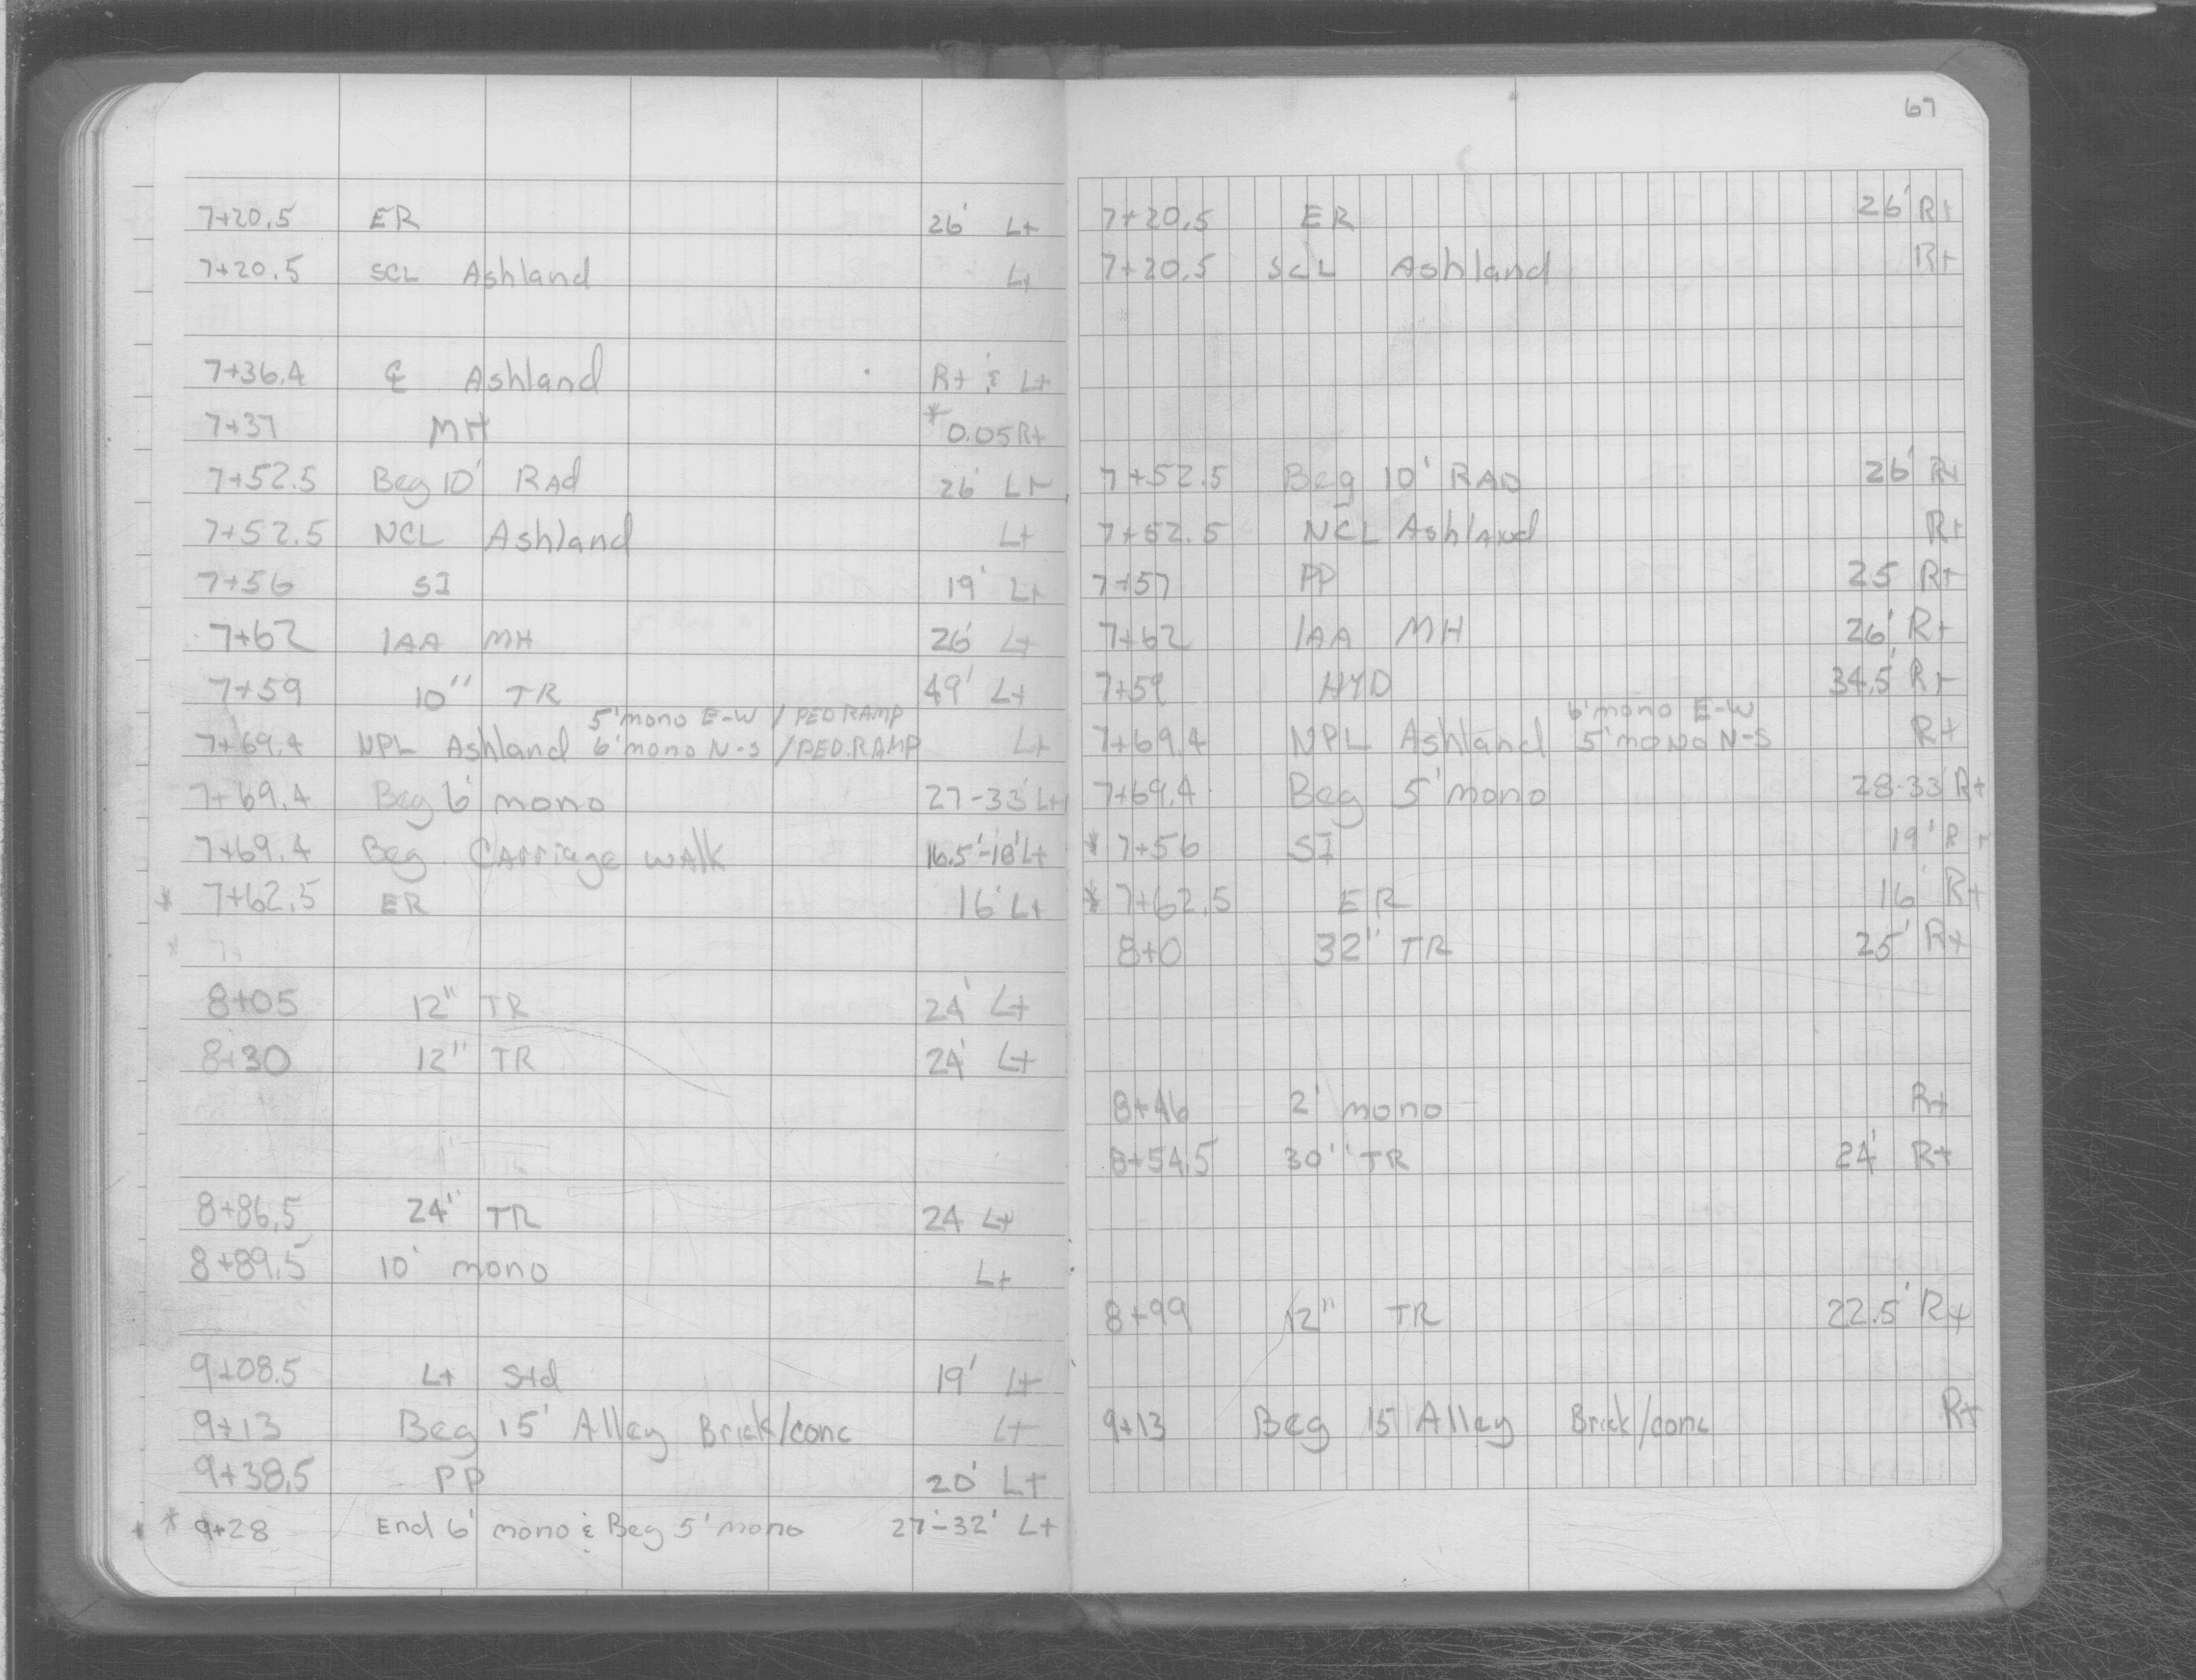 67
7+20.5 ER 26' Lt
7+20.5 SCL Ashland Lt
7+36.4 ℄ Ashland Rt & Lt
7+37 MH *0.05 Rt
7+52.5 Beg 10' RAd 26' Lt
7+52.5 NCL Ashland Lt
7+56 SI 19' Lt
7+62 IAA MH 26' Lt
7+59 10" TR 49' Lt
5' mono E-W / PED RAMP
7+69.4 NPL Ashland 6' mono N-S / PED. RAMP Lt
7+69.4 Beg 6' mono 27-33' Lt
7+69.4 Beg CArriage WAlk 16.5'-18' Lt
* 7+62.5 ER 16' Lt
8+05 12" TR 24' Lt
8+30 12" TR 24' Lt
8+86.5 24" TR 24 Lt
8+89.5 10' mono Lt
9+08.5 Lt Std 19' Lt
9+13 Beg 15' Alley Brick/conc Lt
9+38.5 PP 20' Lt
* * 9+28 End 6' mono & Beg 5' mono 27'-32' Lt
7+20.5 ER 26' Rt
7+20.5 SCL Ashland Rt
7+52.5 Beg 10' RAD 26' Rt
7+52.5 NCL AshlANd Rt
7+57 PP 25 Rt
7+62 IAA MH 26' Rt
7+59 HYD 34.5' Rt
6' mono E-W
7+69.4 NPL Ashland 5' mono N-S Rt
7+69.4 Beg 5' mono 28-33' Rt
* 7+56 SI 19' Rt
* 7+62.5 ER 16' Rt
8+0 32" TR 25' Rt
8+46 2' mono Rt
8+54.5 30" TR 24' Rt
8+99 12" TR 22.5' Rt
9+13 Beg 15' Alley Brick/conc Rt